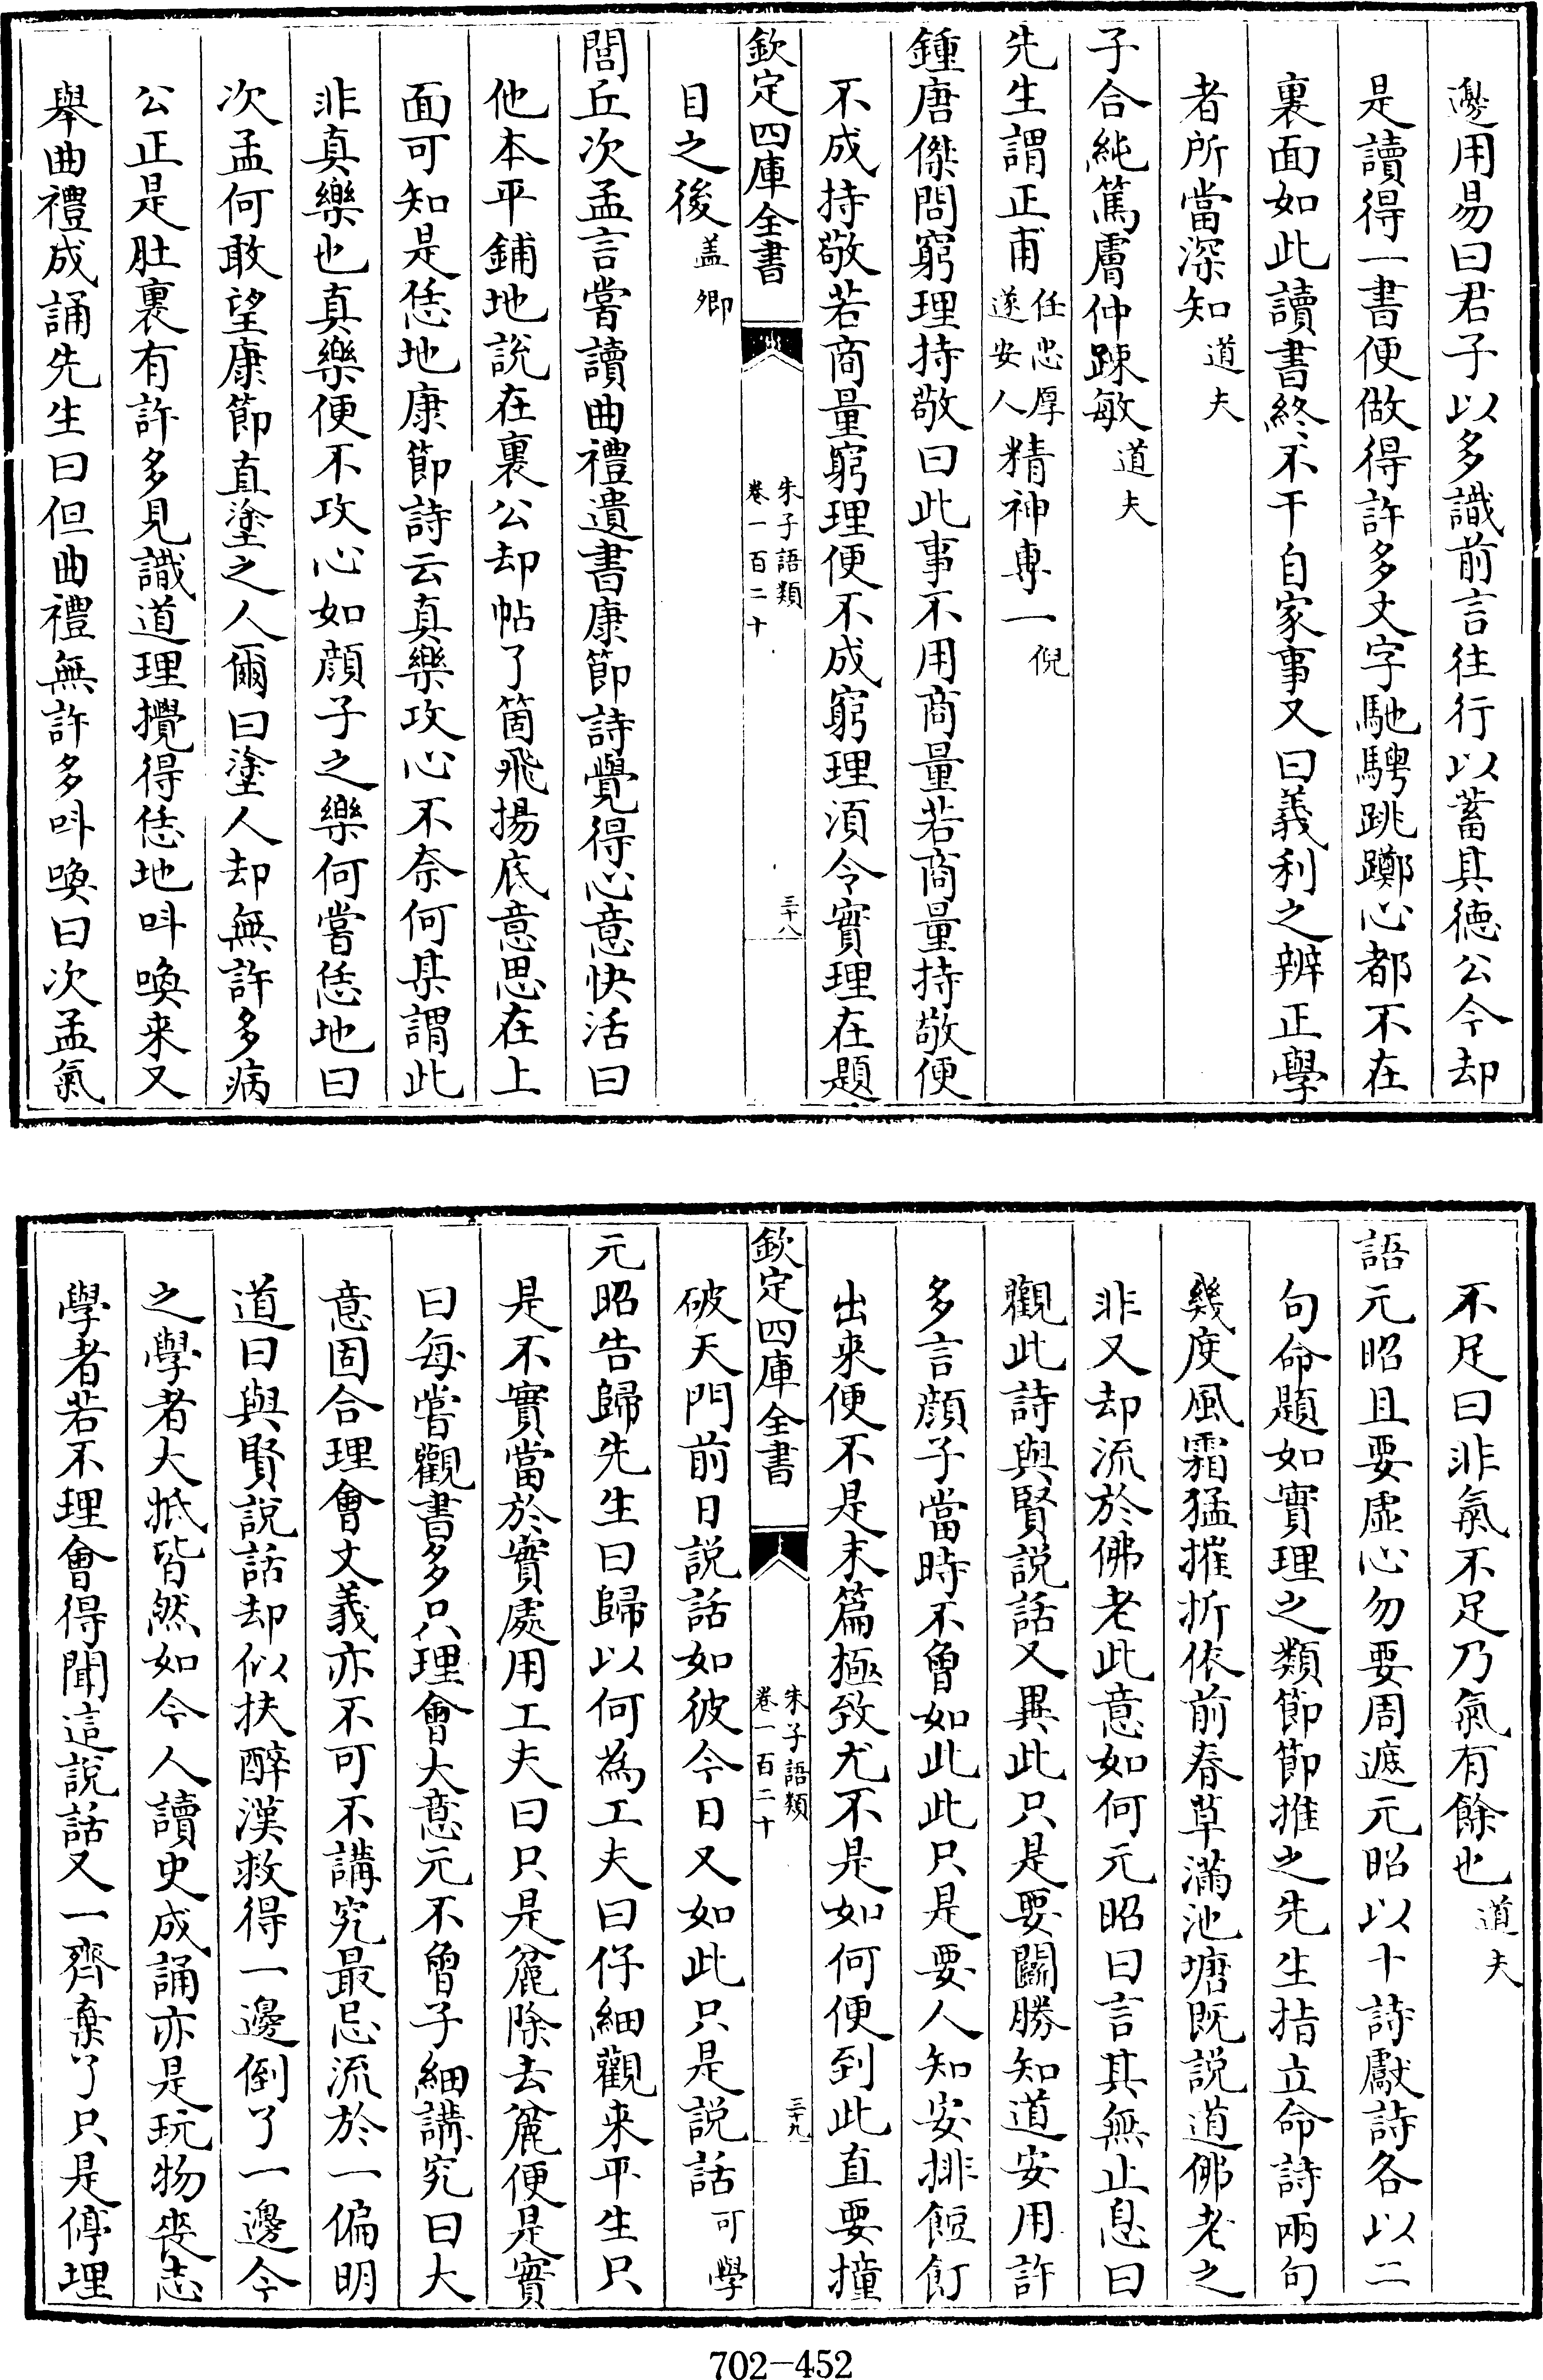 邊用易曰君子以多識前言往行以蓄其德公今却
是讀得一書便做得許多文字馳騁跳躑心都不在
裏面如此讀書終不干自家事又曰義利之辨正學
者所當深知道夫
子合純篤膚仲踈敏道夫
先生謂正甫任忠厚遂安人精神專一倪
鍾唐傑問窮理持敬曰此事不用商量若商量持敬便
不成持敬若商量窮理便不成窮理須令實理在題
欽定四庫全書
朱子語類
卷一百二十
三十八
目之後盖卿
閭丘次孟言嘗讀曲禮遺書康節詩覺得心意快活曰
他本平鋪地說在裏公却帖了箇飛揚底意思在上
面可知是恁地康節詩云真樂攻心不奈何某謂此
非真樂也真樂便不攻心如顔子之樂何嘗恁地曰
次孟何敢望康節直塗之人爾曰塗人却無許多病
公正是肚裏有許多見識道理攪得恁地呌喚来又
舉曲禮成誦先生曰但曲禮無許多呌喚曰次孟氣
不足曰非氣不足乃氣有餘也道夫
語元昭且要虛心勿要周遮元昭以十詩獻詩各以二
句命題如實理之類節節推之先生指立命詩兩句
幾度風霜猛摧折依前春草滿池塘既說道佛老之
非又却流於佛老此意如何元昭曰言其無止息曰
觀此詩與賢說話又異此只是要鬭勝知道安用許
多言顔子當時不曾如此此只是要人知安排餖飣
出来便不是末篇極致尤不是如何便到此直要撞
欽定四庫全書
朱子語類
卷一百二十
三十九
破天門前日說話如彼今日又如此只是說話可學
元昭告歸先生曰歸以何為工夫曰仔細觀来平生只
是不實當於實處用工夫曰只是麄除去麄便是實
曰每嘗觀書多只理會大意元不曾子細講究曰大
意固合理會文義亦不可不講究最忌流於一偏明
道曰與賢說話却似扶醉漢救得一邊倒了一邊今
之學者大抵皆然如今人讀史成誦亦是玩物喪志
學者若不理會得聞這說話又一齊棄了只是停埋
702-452